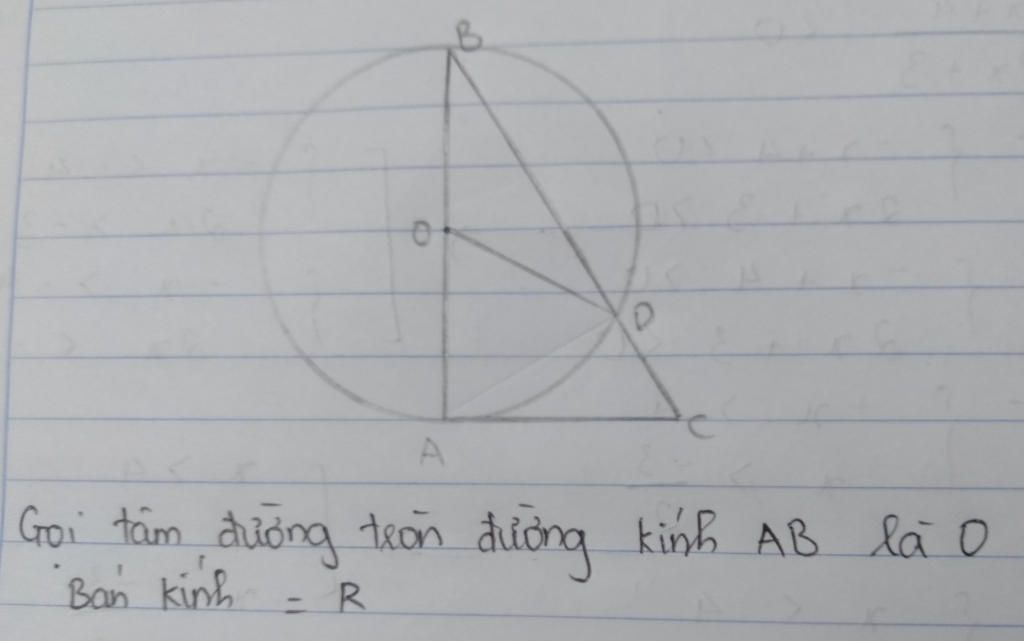 B
O
D
A
C
Gọi tâm đường tròn đường kính AB là O
Bán kính = R